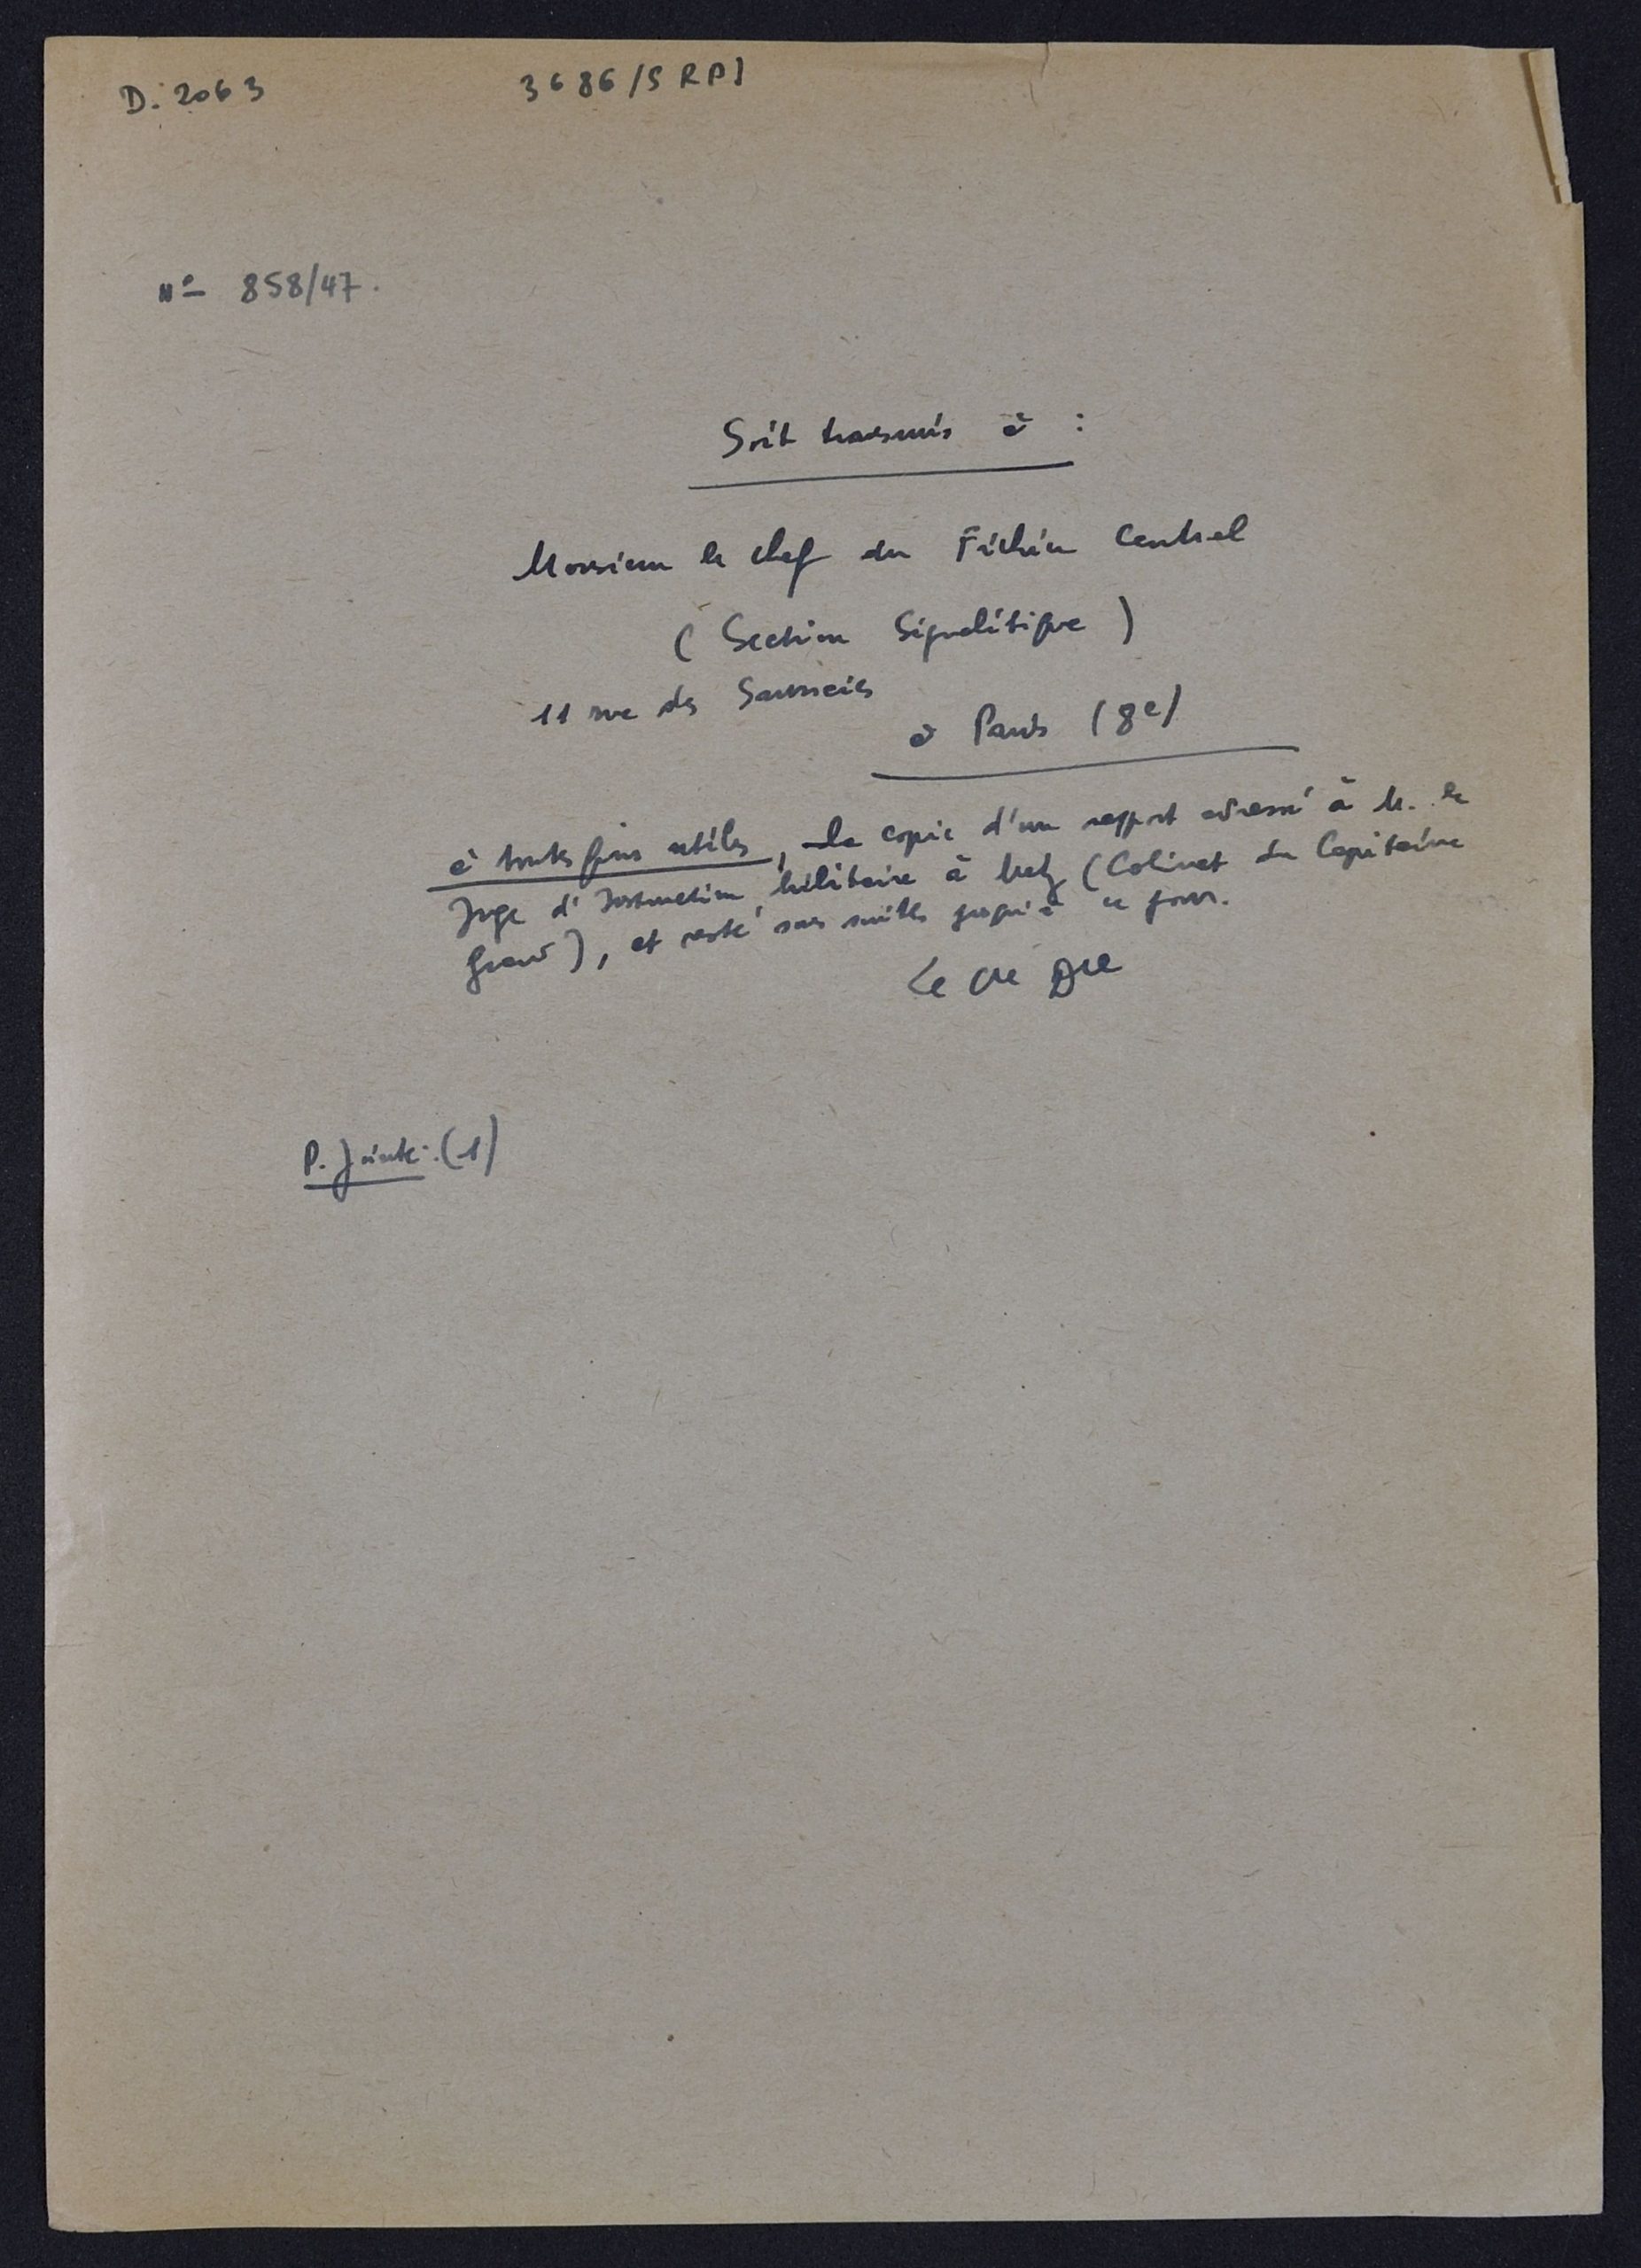 D. 2063
3686/S RPJ
N° 858/47.
Soit transmis à :
Monsieur le Chef du Fichier Central
( Section Signalétique )
11 rue des Saussaies
à Paris (8e)
à toutes fins utiles, la copie d'un rapport adressé à M. le
Juge d'Instruction Militaire à Metz (Cabinet du Capitaine
), et resté sans suites jusqu'à ce jour.
Le Cre Dre
P. Jointe : (1)